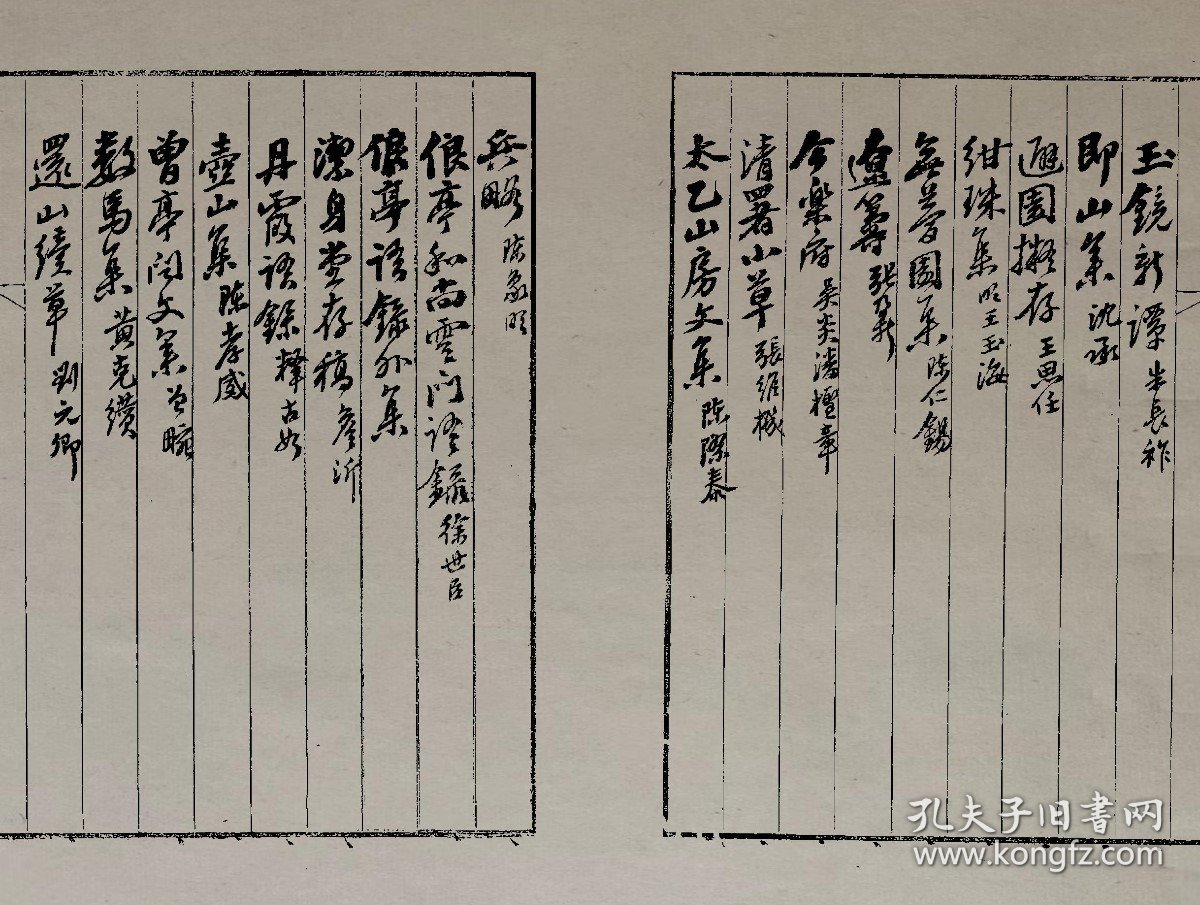 玉鏡新譚 朱長祚
即山集 沈承
避園擬存 王思任
紺珠集 明王玉海
無夢園集 陳仁錫
遼籌 張鼐
今樂府 吳炎潘檉章
清署小草 張維機
太乙山房文集 陳際泰
兵略 陳象明
俍亭和尚雲門語錄 徐世臣
俍亭語錄外集
潔身堂存稿 詹沂
丹霞語錄 釋古如
壺山集 陳孝威
曾亭閃文集 曾畹
數馬集 黃克纘
還山續草 劉元卿
孔夫子旧书网
www.kongfz.com